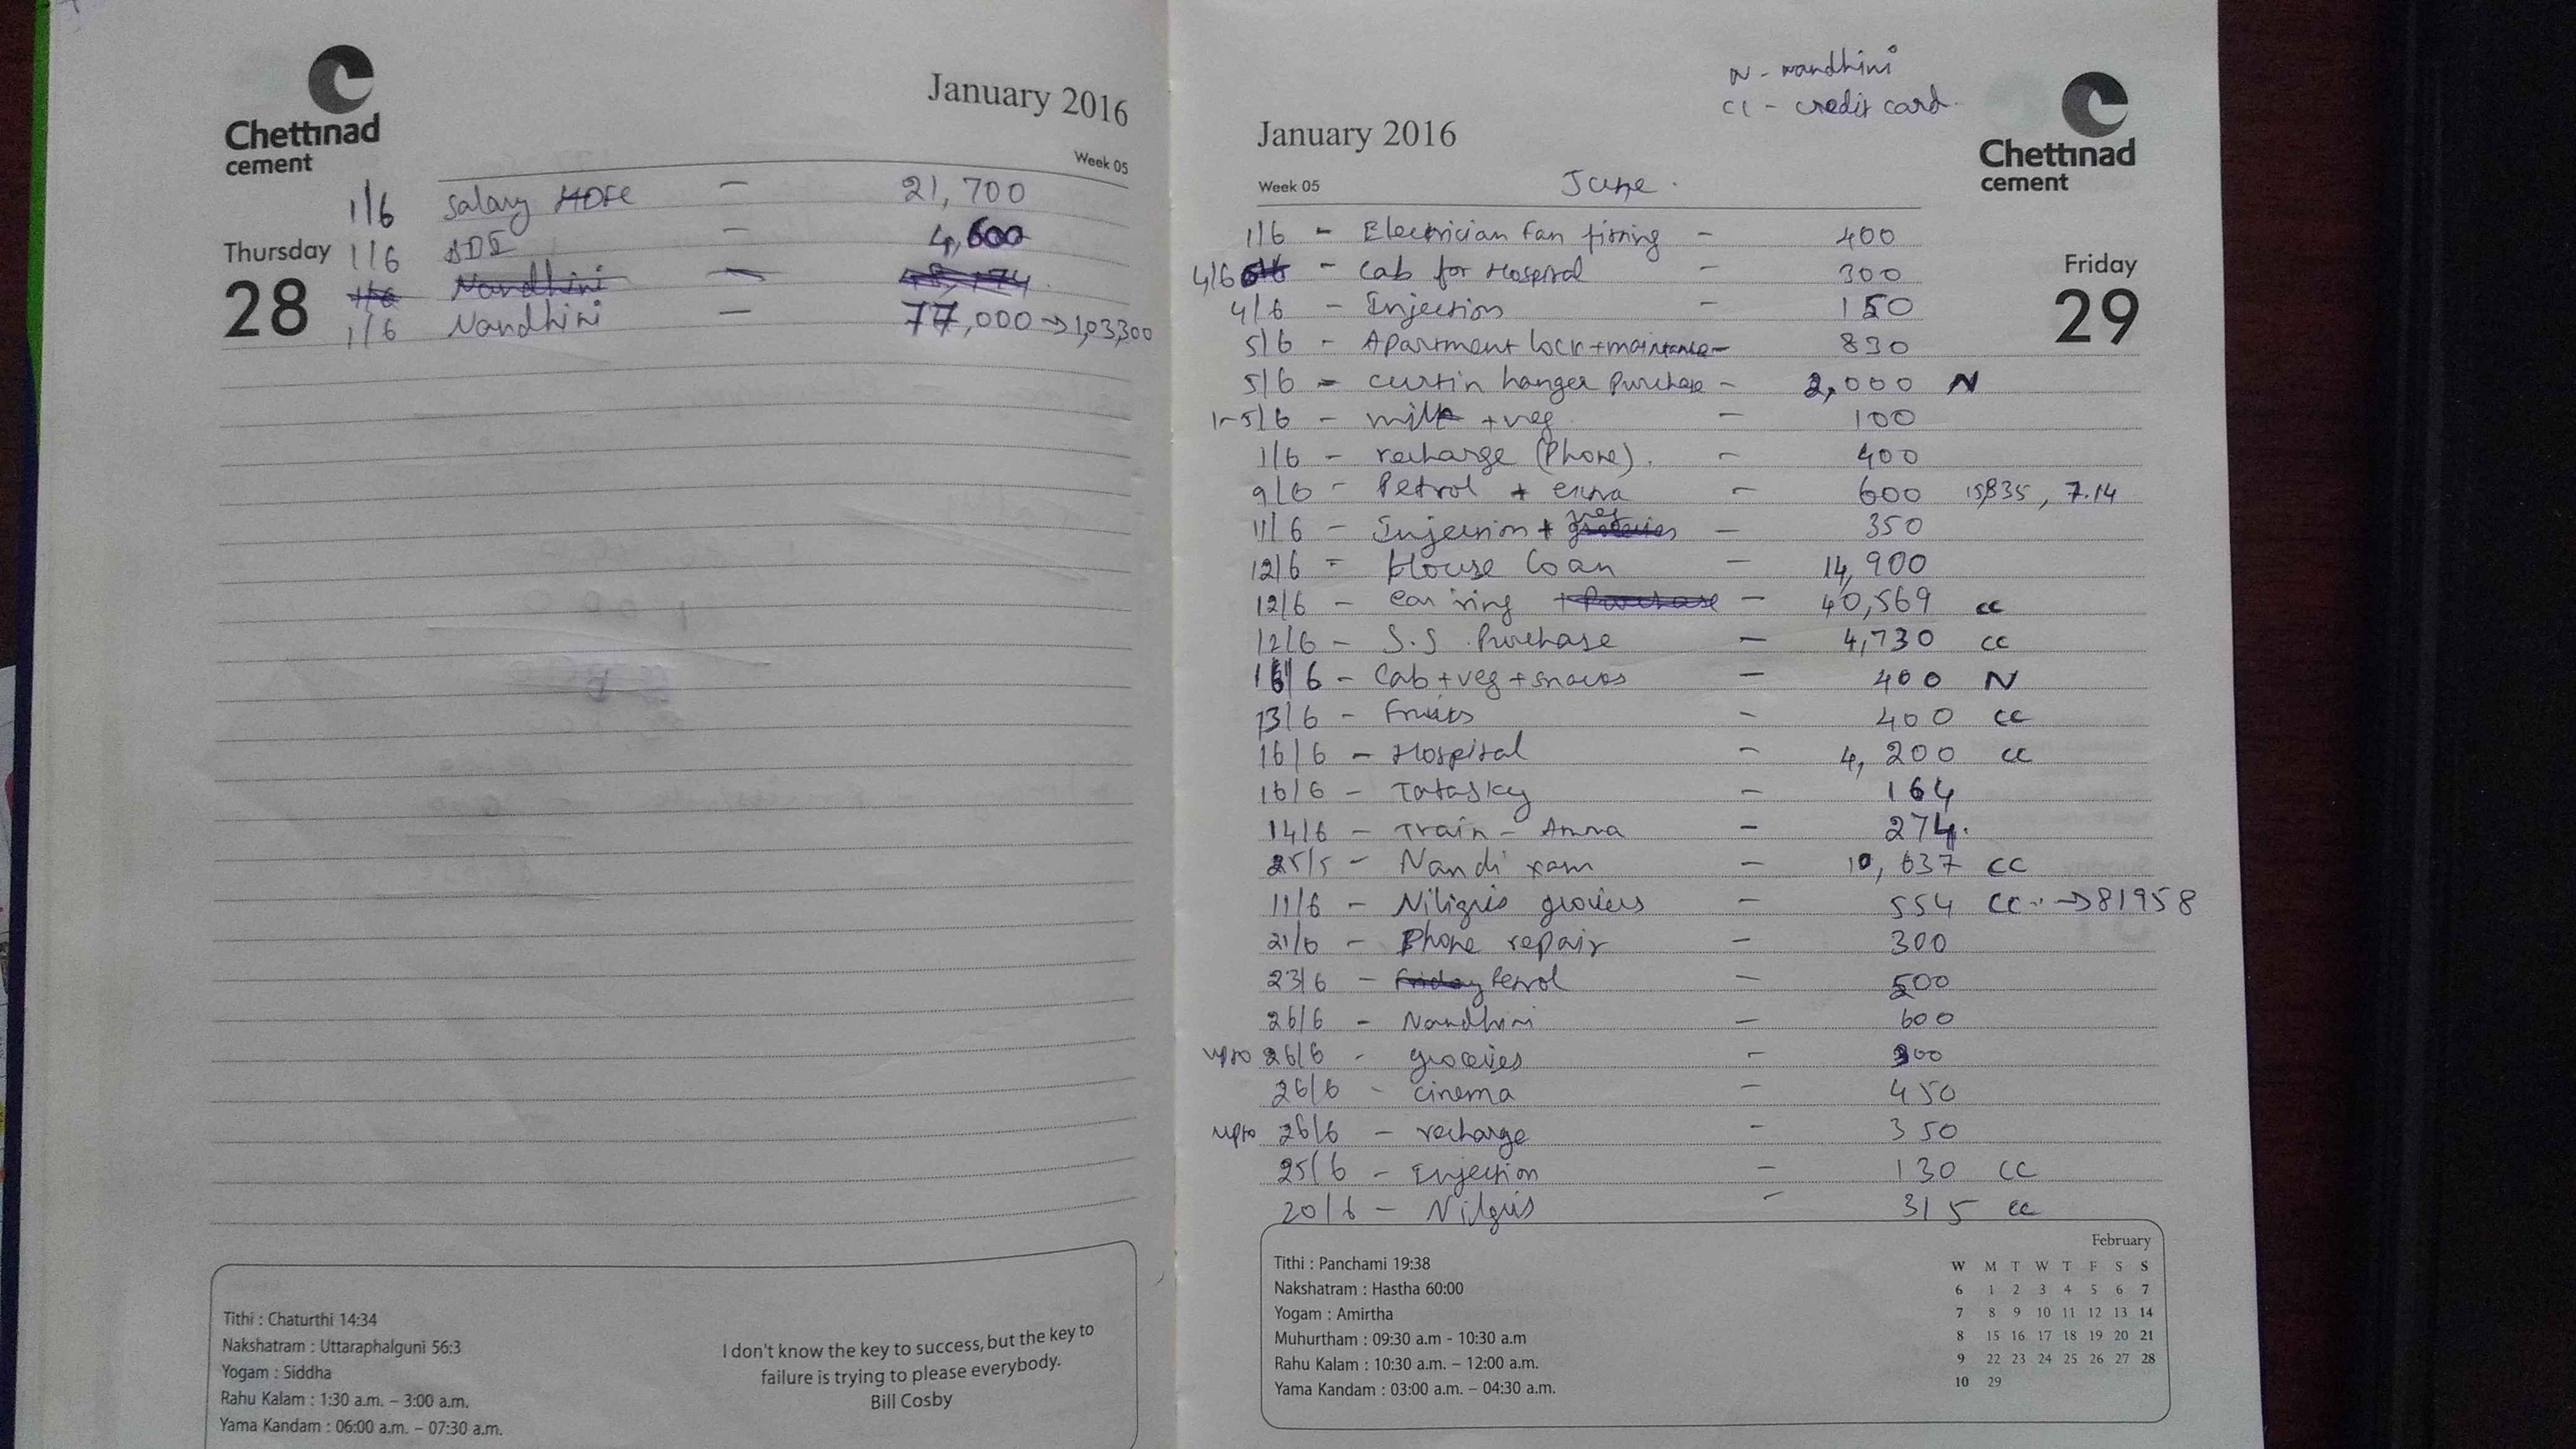 Chettinad
cement
January 2016
Week 05
Thursday
28
1/6 Salary - 21,700
1/6 - 4,600
1/6 Nandhini - 48,174
1/6 Nandhini - 77,000 → 1,03,300
Tithi : Chaturthi 14:34
Nakshatram : Uttaraphalguni 56:3
Yogam : Siddha
Rahu Kalam : 1:30 a.m. – 3:00 a.m.
Yama Kandam : 06:00 a.m. – 07:30 a.m.
I don't know the key to success, but the key to
failure is trying to please everybody.
Bill Cosby
N - nandhini
CC - credit card
January 2016
Chettinad
cement
Week 05
June.
Friday
29
1/6 - Electrician Fan fitting - 400
4/6 - Cab for Hospital - 300
4/6 - Injection - 150
5/6 - Apartment lock + maintance - 830
5/6 - curtin hanger Purchase - 2,000 N
1-5/6 - milk + veg - 100
1/6 - recharge (Phone). - 400
9/6 - Petrol + extra - 600 15,835, 7.14
11/6 - Injection + veg - 350
12/6 - House Loan - 14,900
12/6 - ear ring + Purchase - 40,569 cc
12/6 - S.S. Purchase - 4,730 cc
16/6 - Cab + veg + snacks - 400 N
13/6 - Fruits - 400 cc
16/6 - Hospital - 4,200 cc
16/6 - Tatasky - 164
14/6 - Train - Amma - 274.
25/5 - Nandi - 10,637 CC
11/6 - Niligris - 554 CC. → 81958
21/6 - Phone repair - 300
23/6 - Friday Petrol - 500
26/6 - Nandhini - 600
upto 26/6 - groceries - 300
26/6 - cinema - 450
upto 26/6 - recharge - 350
25/6 - Injection - 130 CC
20/6 - Nilgris - 315 cc
Tithi : Panchami 19:38
Nakshatram : Hastha 60:00
Yogam : Amirtha
Muhurtham : 09:30 a.m - 10:30 a.m
Rahu Kalam : 10:30 a.m. – 12:00 a.m.
Yama Kandam : 03:00 a.m. – 04:30 a.m.
February
W M T W T F S S
6 1 2 3 4 5 6 7
7 8 9 10 11 12 13 14
8 15 16 17 18 19 20 21
9 22 23 24 25 26 27 28
10 29